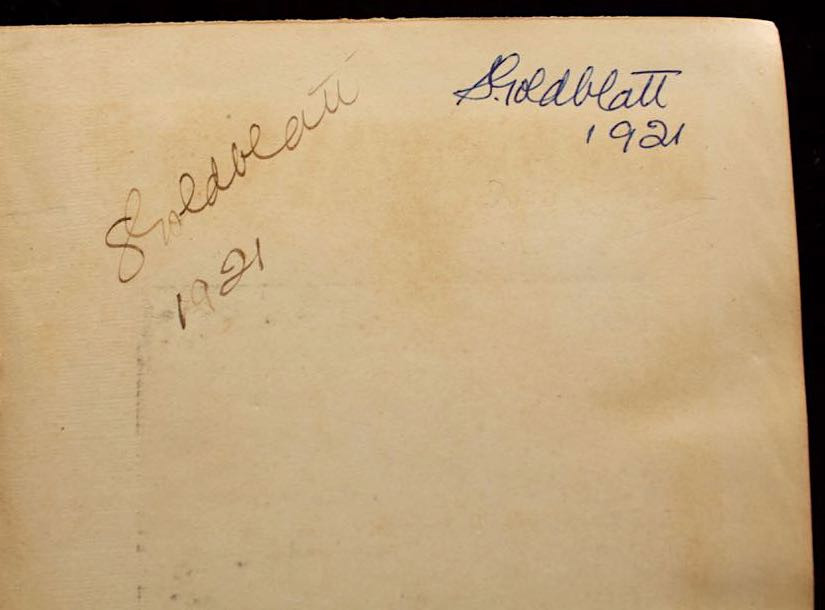 S. Goldblatt
1921
S Goldblatt
1921